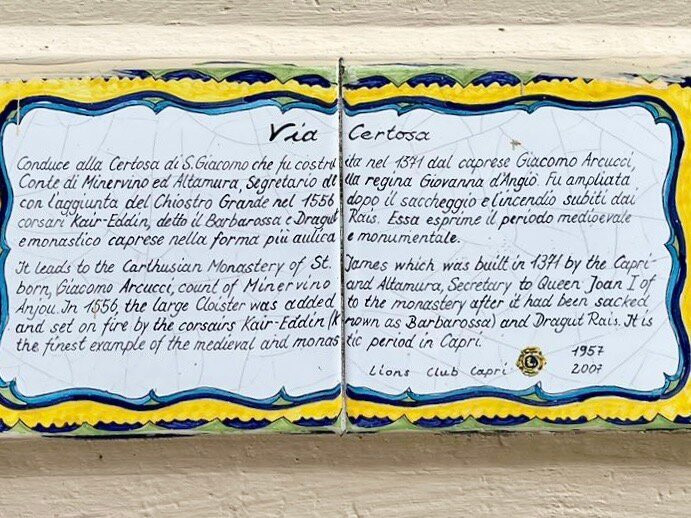 Via Certosa
Conduce alla Certosa di S. Giacomo che fu costruita nel 1371 dal caprese Giacomo Arcucci,
Conte di Minervino ed Altamura, Segretario della regina Giovanna d'Angiò. Fu ampliata
con l'aggiunta del Chiostro Grande nel 1556 dopo il saccheggio e l'incendio subiti dai
corsari Kair-Eddin, detto il Barbarossa e Dragut Rais. Essa esprime il periodo medioevale
e monastico caprese nella forma più aulica e monumentale.
It leads to the Carthusian Monastery of St. James which was built in 1371 by the Capri-
born, Giacomo Arcucci, count of Minervino and Altamura, Secretary to Queen Joan I of
Anjou. In 1556, the large Cloister was added to the monastery after it had been sacked
and set on fire by the corsairs Kair-Eddin (known as Barbarossa) and Dragut Rais. It is
the finest example of the medieval and monastic period in Capri.
Lions Club Capri 1957
2007